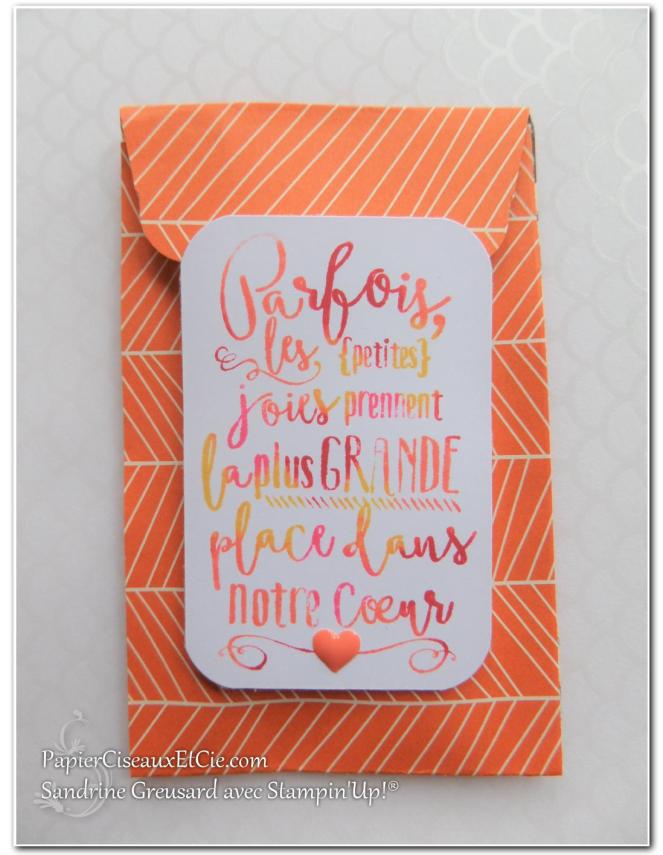 Parfois,
les {petites}
joies prennent
la plus GRANDE
place dans
notre Coeur
PapierCiseauxEtCie.com
Sandrine Greusard avec Stampin'Up!®